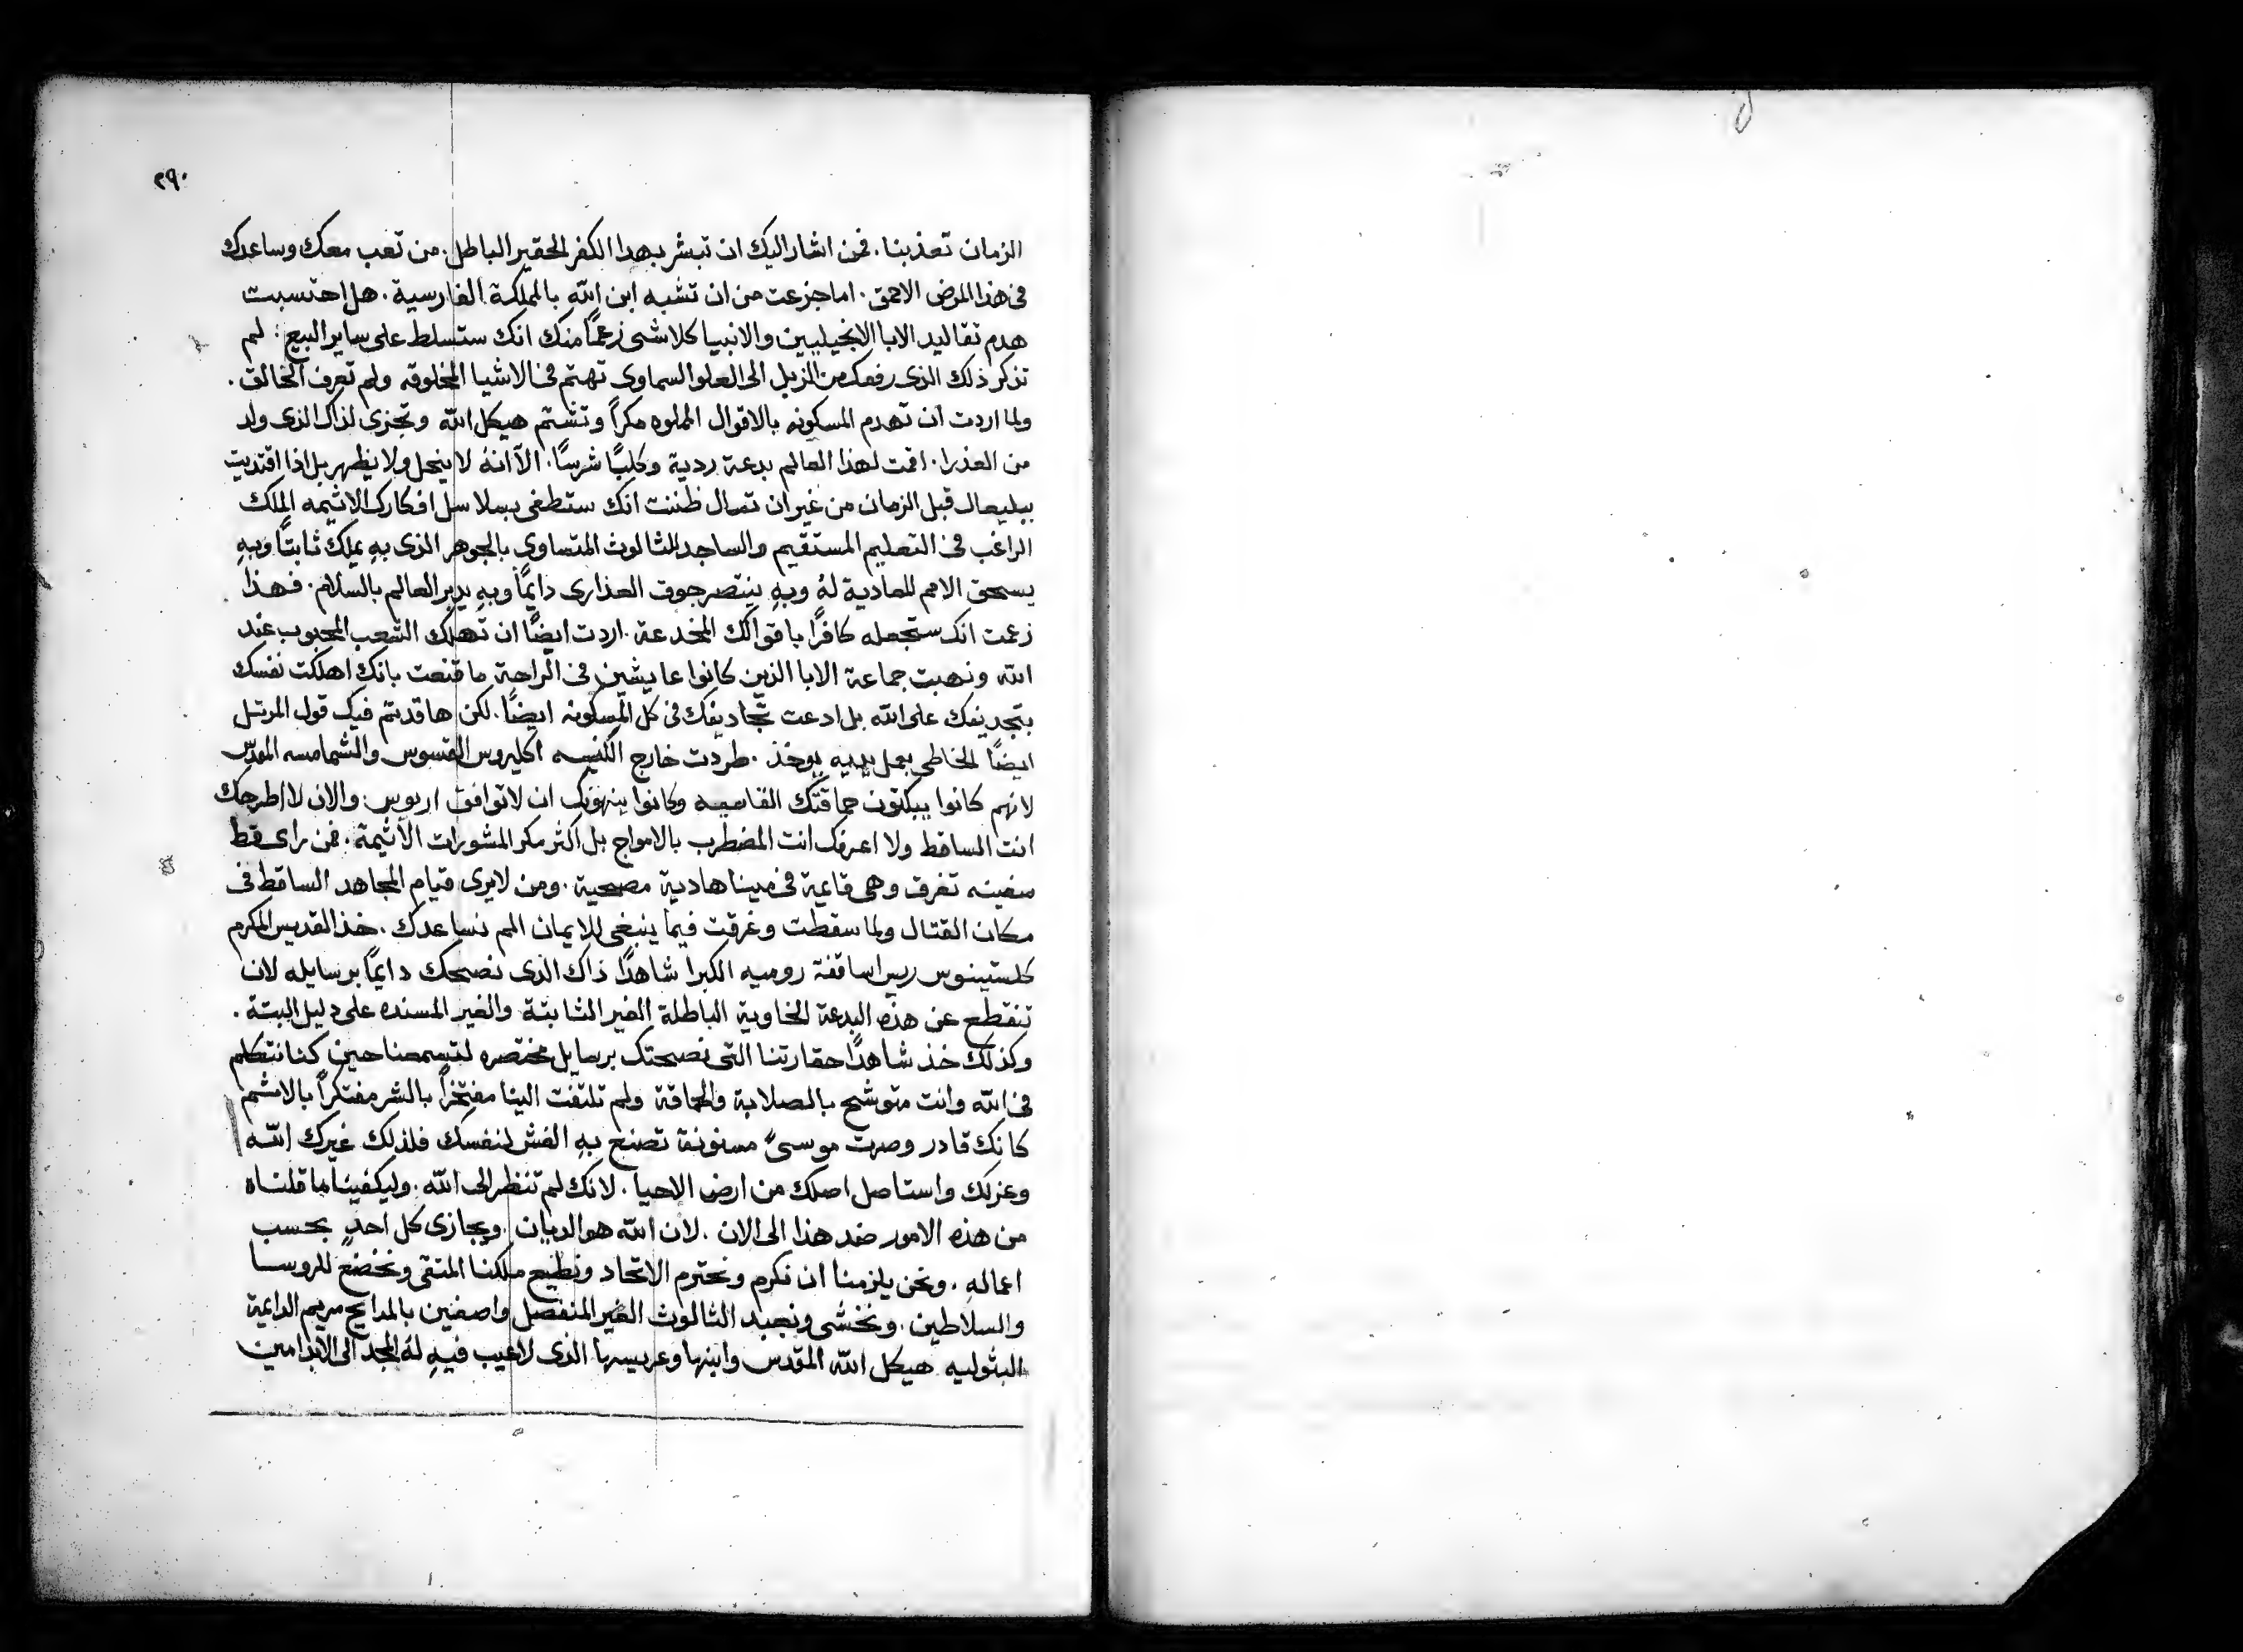 ٢٩٠
الزمان تعذبنا. فمن اشار اليك ان تبشر بهدا الكفر الحقير الباطل. من تعب معك وساعدك
فى هذا المرض الاحمق. اما جزعت من ان تشبه ابن الله بالمملكة الفارسية. هل احتسبت
هدم تقاليد الابا الانجيليين والانبيا كلا شى زعمًا منك انك ستسلط على ساير البيع: لم
تذكر ذلك الذى رفعك من الزبل الى العلو السماوى تهتم فى الاشيا المخلوقه ولم تعرف الخالق.
ولما اردت ان تهدم المسكونه بالاقوال المملوه مكراً وتشتم هيكل الله وتجزى لذاك الذى ولد
من العذرا. اقمت لهذا العالم بدعة ردية وكلبًا شرسًا. الآ انهُ لا ينحل ولا يظهر بل اذا اقتديت
ببليعال قبل الزمان من غير ان تسال ظننت انك ستطغى بسلاسل افكارك الاثيمه الملك
الراغب فى التعليم المستقيم والساجد للثالوث المتساوى بالجوهر الذى بهِ يملك ثابتًا وبهِ
يسحق الامم المعادية لهُ وبهِ ينتصر جوق العذارى دايمًا وبهِ يدبر العالم بالسلام. فهذا
زعمت انك ستجعله كافرًا باقوالك المخدعة. اردت ايضًا ان تهلك الشعب المحبوب عند
الله ونهبت جماعة الابا الذين كانوا عايشين فى الراحة ما قنعت بانك اهلكت نفسك
بتجديفك على الله بل ادعت تجاديفك فى كل المسكونه ايضًا. لكن ها قد تم فيك قول المرتل
ايضًا الخاطى بعمل يديه يوخذ. طردت خارج الكنيسه اكليروس القسوس والشمامسه المقدس
لانهم كانوا يبكتون حماقتك القاسيه وكانوا ينهونك ان لا توافق اريوس: والان لا اطرحك
انت الساقط ولا اعرفك انت المضطرب بالامواج بل اكثر مكر المشورات الاثيمة. فمن راى قط
سفينه تغرق وهى قايمة فى مينا هادية مصحية. ومن لا يرى قيام المجاهد الساقط فى
مكان القتال ولما سقطت وغرقت فيما ينبغى للايمان الم نساعدك. خذ القديس المكرم
كلستينوس ريس اساقفة روميه الكبرا شاهدًا ذاك الذى نصحك دايمًا برسايله لان
تنقطع عن هذه البدعة الخاوية الباطلة الغير الثابتة والغير المسنده على دليل البتة.
وكذلك خذ شاهدًا حقارتنا التى نصحتك برسايل مختصره لتسمعنا حين كنا نتكلم
فى الله وانت متوشح بالصلابة والحماقة ولم تلتفت الينا مفتخرًا بالشر مفتكراً بالاثم
كانك قادر وصرت موسىً مسنونة تصنع بهِ الغش لنفسك فلذلك غيرك الله
وعزلك واستاصل اصلك من ارض الاحيا. لانك لم تنظر الى الله. وليكفينا ما قلناه
من هذه الامور ضد هذا الى الان. لان الله هو الديان ويجازى كل احدٍ بحسب
اعمالهِ. ونحن يلزمنا ان نكرم ونحترم الاتحاد ونطيع ملكنا المتقى ونخضع للروسا
والسلاطين. ونخشى ونعبد الثالوث الغير المنفصل واصفين بالمدايح مريم الدايمة
البتوليه هيكل الله المقدس وابنها وعريسها الذى لا عيب فيهِ لهُ المجد الى الابد امين